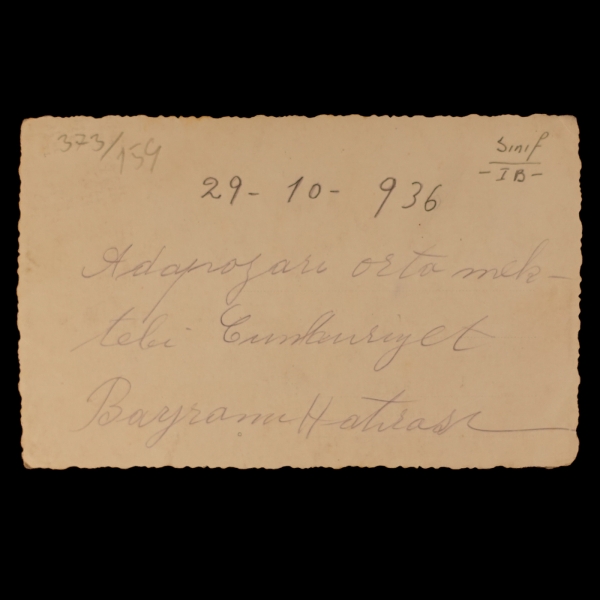 373/154
Sınıf
- I B -
29 - 10 - 936
Adapazarı orta mek-
tebi Cumhuriyet
Bayramı Hatırası